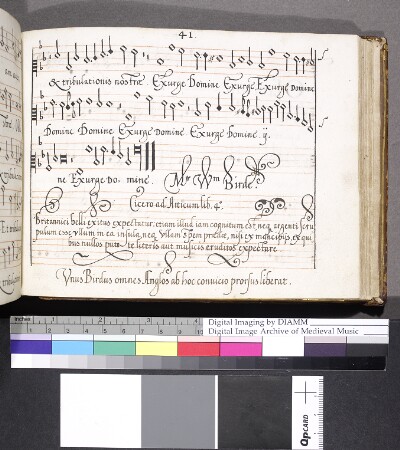 41.
& tribulationis nostræ Exurge Domine Exurge, Exurge Domine
Domine Domine Exurge domine Exurge Domine. ij.
ne Exurge Do mine. Mr Wm Birde.
Cicero ad Atticum lib. 4.
Britannici belli exitus expectatur, etiam illud iam cognitum est, neq. argenti scru
pulum esse vllum in ea insula, neq. vllam spem prædæ, nisi ex mancipijs, ex qui
bus nullos puto te literis aut musicis eruditos expectare
Vnus Birdus omnes Anglos ab hoc conuicio prorsus liberat.
inches 1 2 3 4
Digital Imaging by DIAMM
Digital Image Archive of Medieval Music
QPCARD